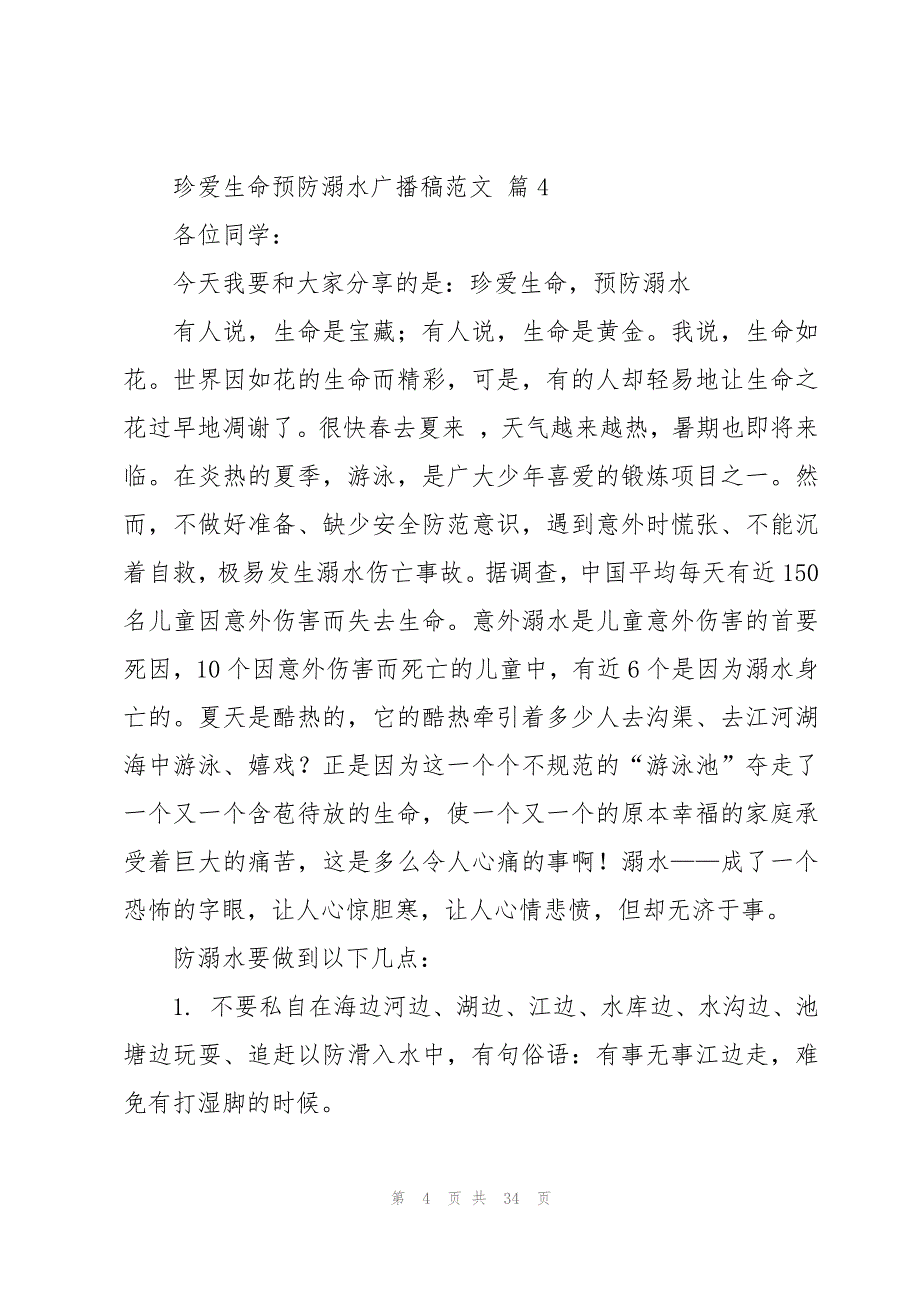 珍爱生命预防溺水广播稿范文 篇4
各位同学：
今天我要和大家分享的是：珍爱生命，预防溺水
有人说，生命是宝藏；有人说，生命是黄金。我说，生命如
花。世界因如花的生命而精彩，可是，有的人却轻易地让生命之
花过早地凋谢了。很快春去夏来 ，天气越来越热，暑期也即将来
临。在炎热的夏季，游泳，是广大少年喜爱的锻炼项目之一。然
而，不做好准备、缺少安全防范意识，遇到意外时慌张、不能沉
着自救，极易发生溺水伤亡事故。据调查，中国平均每天有近150
名儿童因意外伤害而失去生命。意外溺水是儿童意外伤害的首要
死因，10个因意外伤害而死亡的儿童中，有近6个是因为溺水身
亡的。夏天是酷热的，它的酷热牵引着多少人去沟渠、去江河湖
海中游泳、嬉戏？正是因为这一个个不规范的“游泳池”夺走了
一个又一个含苞待放的生命，使一个又一个的原本幸福的家庭承
受着巨大的痛苦，这是多么令人心痛的事啊！溺水——成了一个
恐怖的字眼，让人心惊胆寒，让人心情悲愤，但却无济于事。
防溺水要做到以下几点：
1. 不要私自在海边河边、湖边、江边、水库边、水沟边、池
塘边玩耍、追赶以防滑入水中，有句俗语：有事无事江边走，难
免有打湿脚的时候。
第 4 页 共 34 页